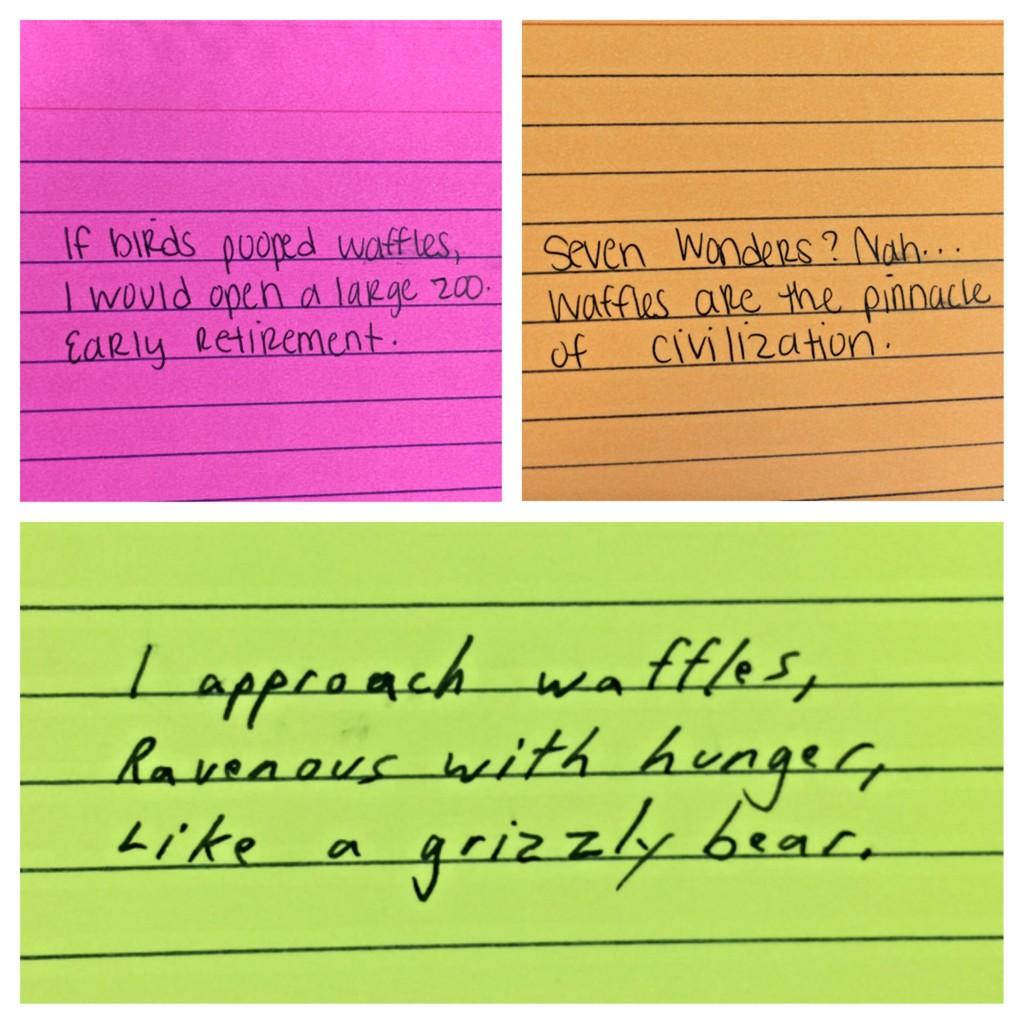 If birds pooped waffles,
I would open a large zoo.
Early retirement.
Seven Wonders? Nah...
Waffles are the pinnacle
of civilization.
I approach waffles,
Ravenous with hunger,
Like a grizzly bear.